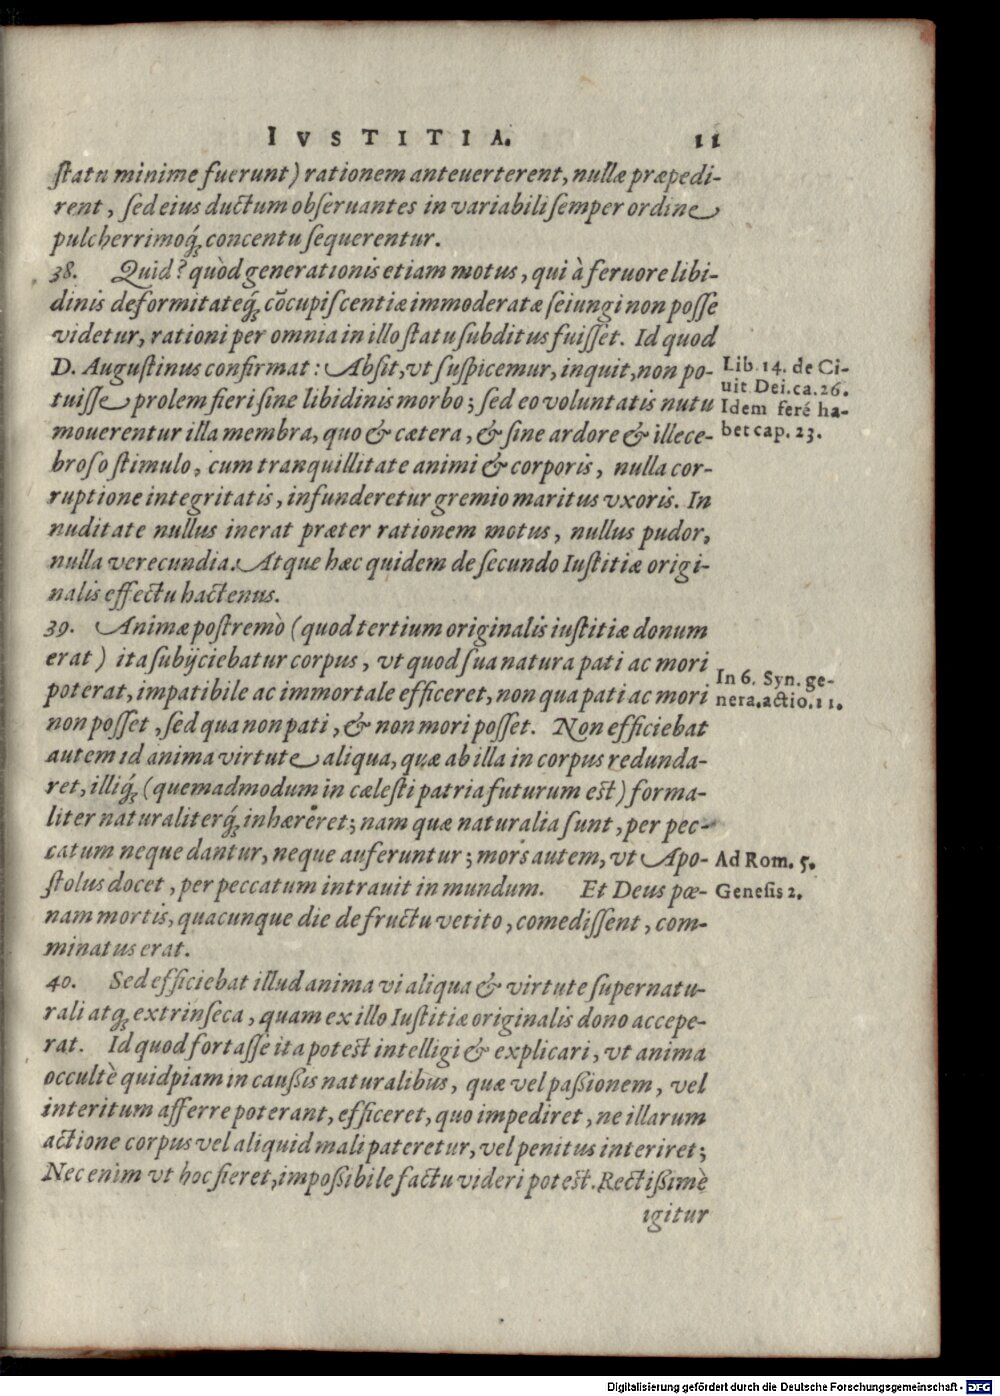 IVSTITIA. 11
ſtatu minime fuerunt) rationem anteuerterent, nullæ præpedi-
rent, ſed eius ductum obſeruantes in variabili ſemper ordine
pulcherrimoq́ꝫ concentu ſequerentur.
38. Quid? quòd generationis etiam motus, qui à feruore libi-
dinis deformitateq́ꝫ cõcupiſcentiæ immoderatæ ſeiungi non poſſe
videtur, rationi per omnia in illo ſtatu ſubditus fuiſſet. Id quod
D. Auguſtinus confirmat: Abſit, vt ſuſpicemur, inquit, non po-
tuiſſe prolem fieri ſine libidinis morbo; ſed eo voluntatis nutu
mouerentur illa membra, quo & cætera, & ſine ardore & illece-
broſo ſtimulo, cum tranquillitate animi & corporis, nulla cor-
ruptione integritatis, infunderetur gremio maritus vxoris. In
nuditate nullus inerat præter rationem motus, nullus pudor,
nulla verecundia. Atque hæc quidem de ſecundo Iuſtitiæ origi-
nalis effectu hactenus.
Lib. 14. de Ci-
uit Dei. ca. 26.
Idem feré ha-
bet cap. 23.
39. Animæ poſtremò (quod tertium originalis iuſtitiæ donum
erat) ita ſubijciebatur corpus, vt quod ſua natura pati ac mori
poterat, impatibile ac immortale efficeret, non qua pati ac mori
non poſſet, ſed qua non pati, & non mori poſſet. Non efficiebat
autem id anima virtute aliqua, quæ ab illa in corpus redunda-
ret, illiq́ꝫ (quemadmodum in cæleſti patria futurum eſt) forma-
liter naturaliterq́ꝫ inhæreret; nam quæ naturalia ſunt, per pec-
catum neque dantur, neque auferuntur; mors autem, vt Apo-
ſtolus docet, per peccatum intrauit in mundum. Et Deus pœ-
nam mortis, quacunque die de fructu vetito, comediſſent, com-
minatus erat.
In 6. Syn. ge-
nera. actio. 11.
Ad Rom. 5.
Geneſis 2.
40. Sed efficiebat illud anima vi aliqua & virtute ſupernatu-
rali atqꝫ extrinſeca, quam ex illo Iuſtitiæ originalis dono accepe-
rat. Id quod fortaſſe ita poteſt intelligi & explicari, vt anima
occultè quidpiam in cauſsis naturalibus, quæ vel paſsionem, vel
interitum afferre poterant, efficeret, quo impediret, ne illarum
actione corpus vel aliquid mali pateretur, vel penitus interiret;
Nec enim vt hoc fieret, impoſsibile factu videri poteſt. Rectiſsimè
igitur
Digitalisierung gefördert durch die Deutsche Forschungsgemeinschaft - DFG